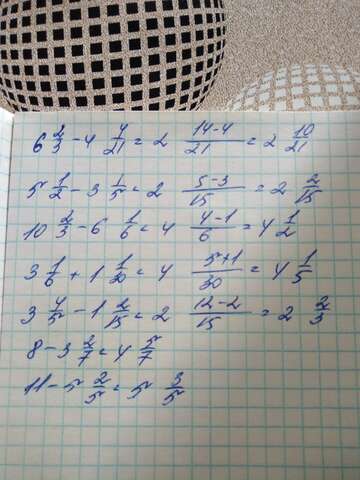 6 2/3 - 4 4/21 = 2 (14-4)/21 = 2 10/21
5 1/2 - 3 1/5 = 2 (5-3)/15 = 2 2/15
10 2/3 - 6 1/6 = 4 (4-1)/6 = 4 1/2
3 1/6 + 1 1/30 = 4 (5+1)/30 = 4 1/5
3 4/5 - 1 2/15 = 2 (12-2)/15 = 2 2/3
8 - 3 2/7 = 4 5/7
11 - 5 2/5 = 5 3/5